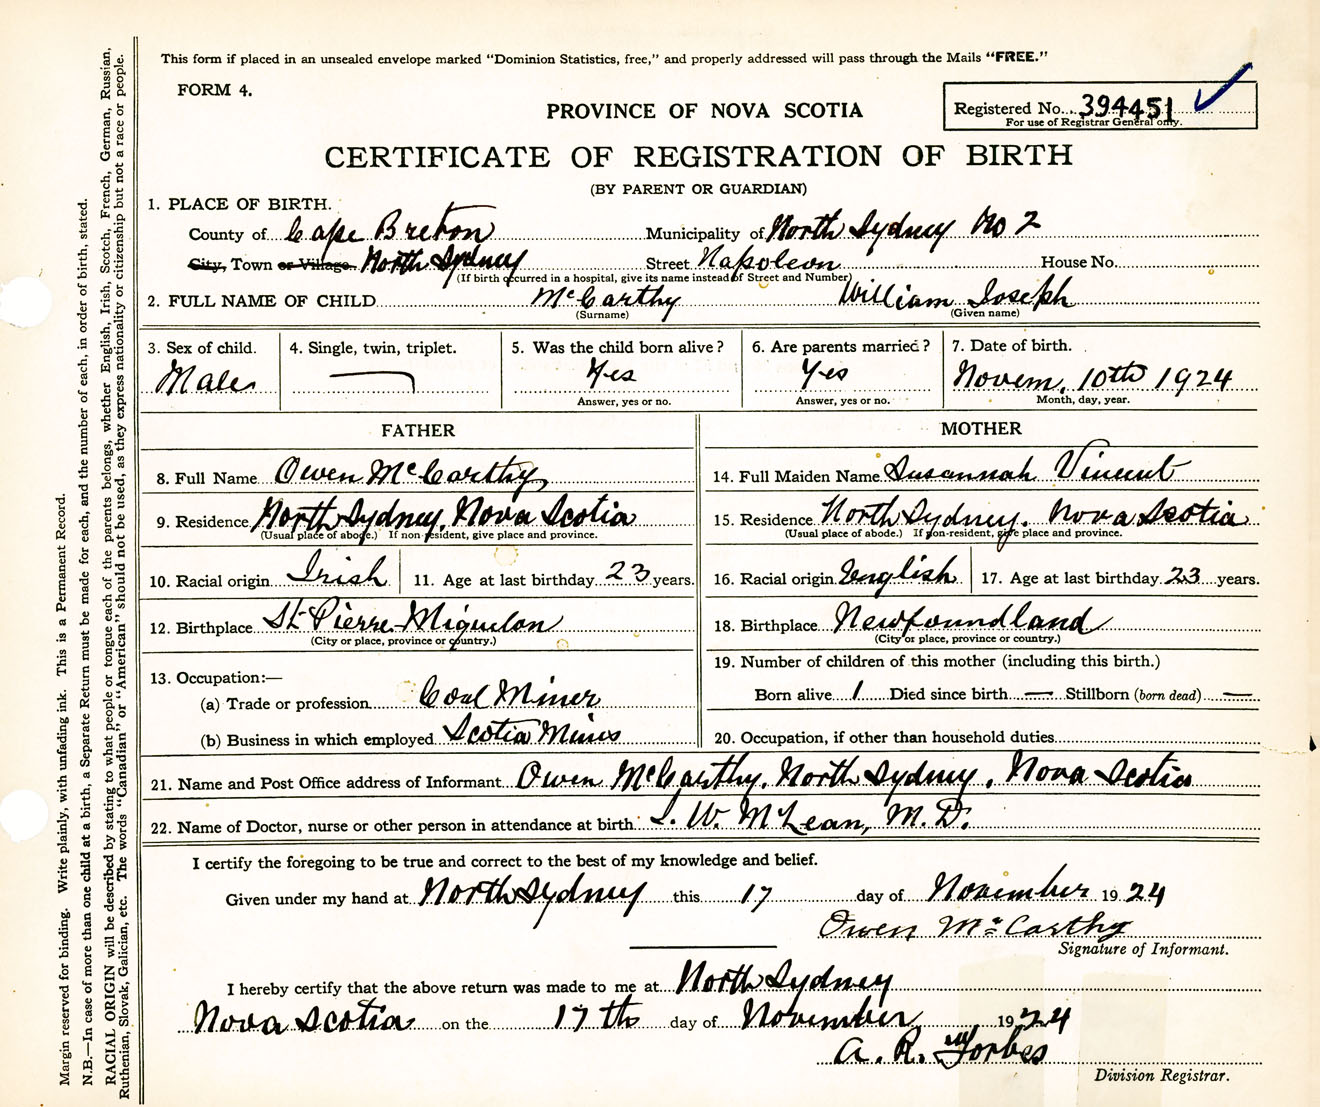 This form if placed in an unsealed envelope marked "Dominion Statistics, free," and properly addressed will pass through the Mails "FREE."
FORM 4.
PROVINCE OF NOVA SCOTIA
Registered No. 394451
For use of Registrar General only.
CERTIFICATE OF REGISTRATION OF BIRTH
(BY PARENT OR GUARDIAN)
1. PLACE OF BIRTH.
County of Cape Breton Municipality of North Sydney No 2
City, Town or Village. North Sydney Street Napoleon House No.
(If birth occurred in a hospital, give its name instead of Street and Number)
2. FULL NAME OF CHILD McCarthy William Joseph
(Surname) (Given name)
3. Sex of child. 4. Single, twin, triplet. 5. Was the child born alive? 6. Are parents married? 7. Date of birth.
Male Yes Yes Novem. 10th 1924
Answer, yes or no. Answer, yes or no. Month, day, year.
FATHER MOTHER
8. Full Name Owen McCarthy 14. Full Maiden Name Susannah Vincent
9. Residence North Sydney, Nova Scotia 15. Residence North Sydney. Nova Scotia
(Usual place of abode.) If non-resident, give place and province. (Usual place of abode.) If non-resident, give place and province.
10. Racial origin Irish 11. Age at last birthday 23 years. 16. Racial origin English 17. Age at last birthday 23 years.
12. Birthplace St. Pierre-Miquelon 18. Birthplace Newfoundland
(City or place, province or country.) (City or place, province or country.)
13. Occupation:— 19. Number of children of this mother (including this birth.)
(a) Trade or profession Coal Miner Born alive 1 Died since birth — Stillborn (born dead) —
(b) Business in which employed Scotia Mines 20. Occupation, if other than household duties
21. Name and Post Office address of Informant Owen McCarthy. North Sydney, Nova Scotia
22. Name of Doctor, nurse or other person in attendance at birth L. W. McLean, M.D.
I certify the foregoing to be true and correct to the best of my knowledge and belief.
Given under my hand at North Sydney this 17 day of November 1924
Owen McCarthy
Signature of Informant.
I hereby certify that the above return was made to me at North Sydney
Nova Scotia on the 17th day of November 1924
A. R. Forbes
Division Registrar.
Margin reserved for binding. Write plainly, with unfading ink. This is a Permanent Record.
N.B.—In case of more than one child at a birth, a Separate Return must be made for each, and the number of each, in order of birth, stated.
RACIAL ORIGIN will be described by stating to what people or tongue each of the parents belongs, whether English, Irish, Scotch, French, German, Russian,
Ruthenian, Slovak, Galician, etc. The words "Canadian" or "American" should not be used, as they express nationality or citizenship but not a race or people.